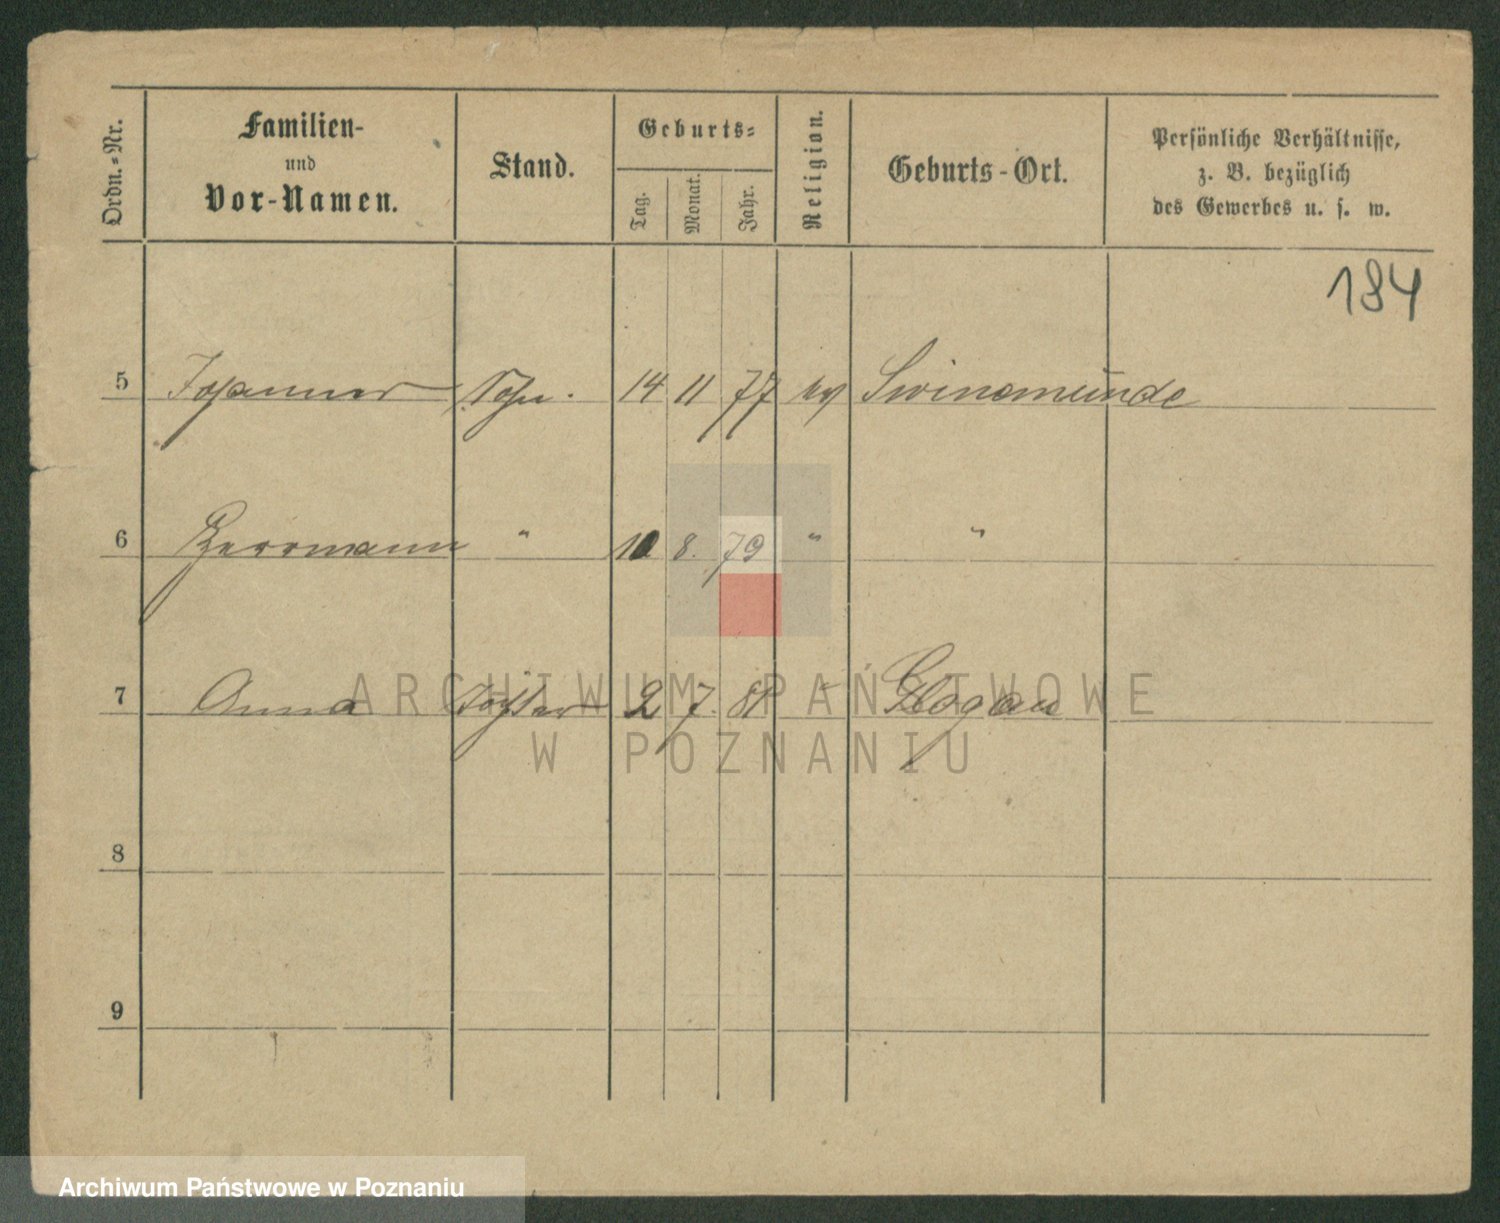 Ordn.-Nr.
Familien-
und
Vor-Namen.
Stand.
Geburts-
Tag.
Monat.
Jahr.
Religion.
Geburts-Ort.
Persönliche Verhältnisse,
z. B. bezüglich
des Gewerbes u. s. w.
184
5 Johannes Sohn. 14 11 77 ev Swinemünde
6 Herrmann " 10 8. 79 " "
7 Anna Tochter 2 7. 81 " Glogau
8
9
ARCHIWUM PAŃSTWOWE
W POZNANIU
Archiwum Państwowe w Poznaniu